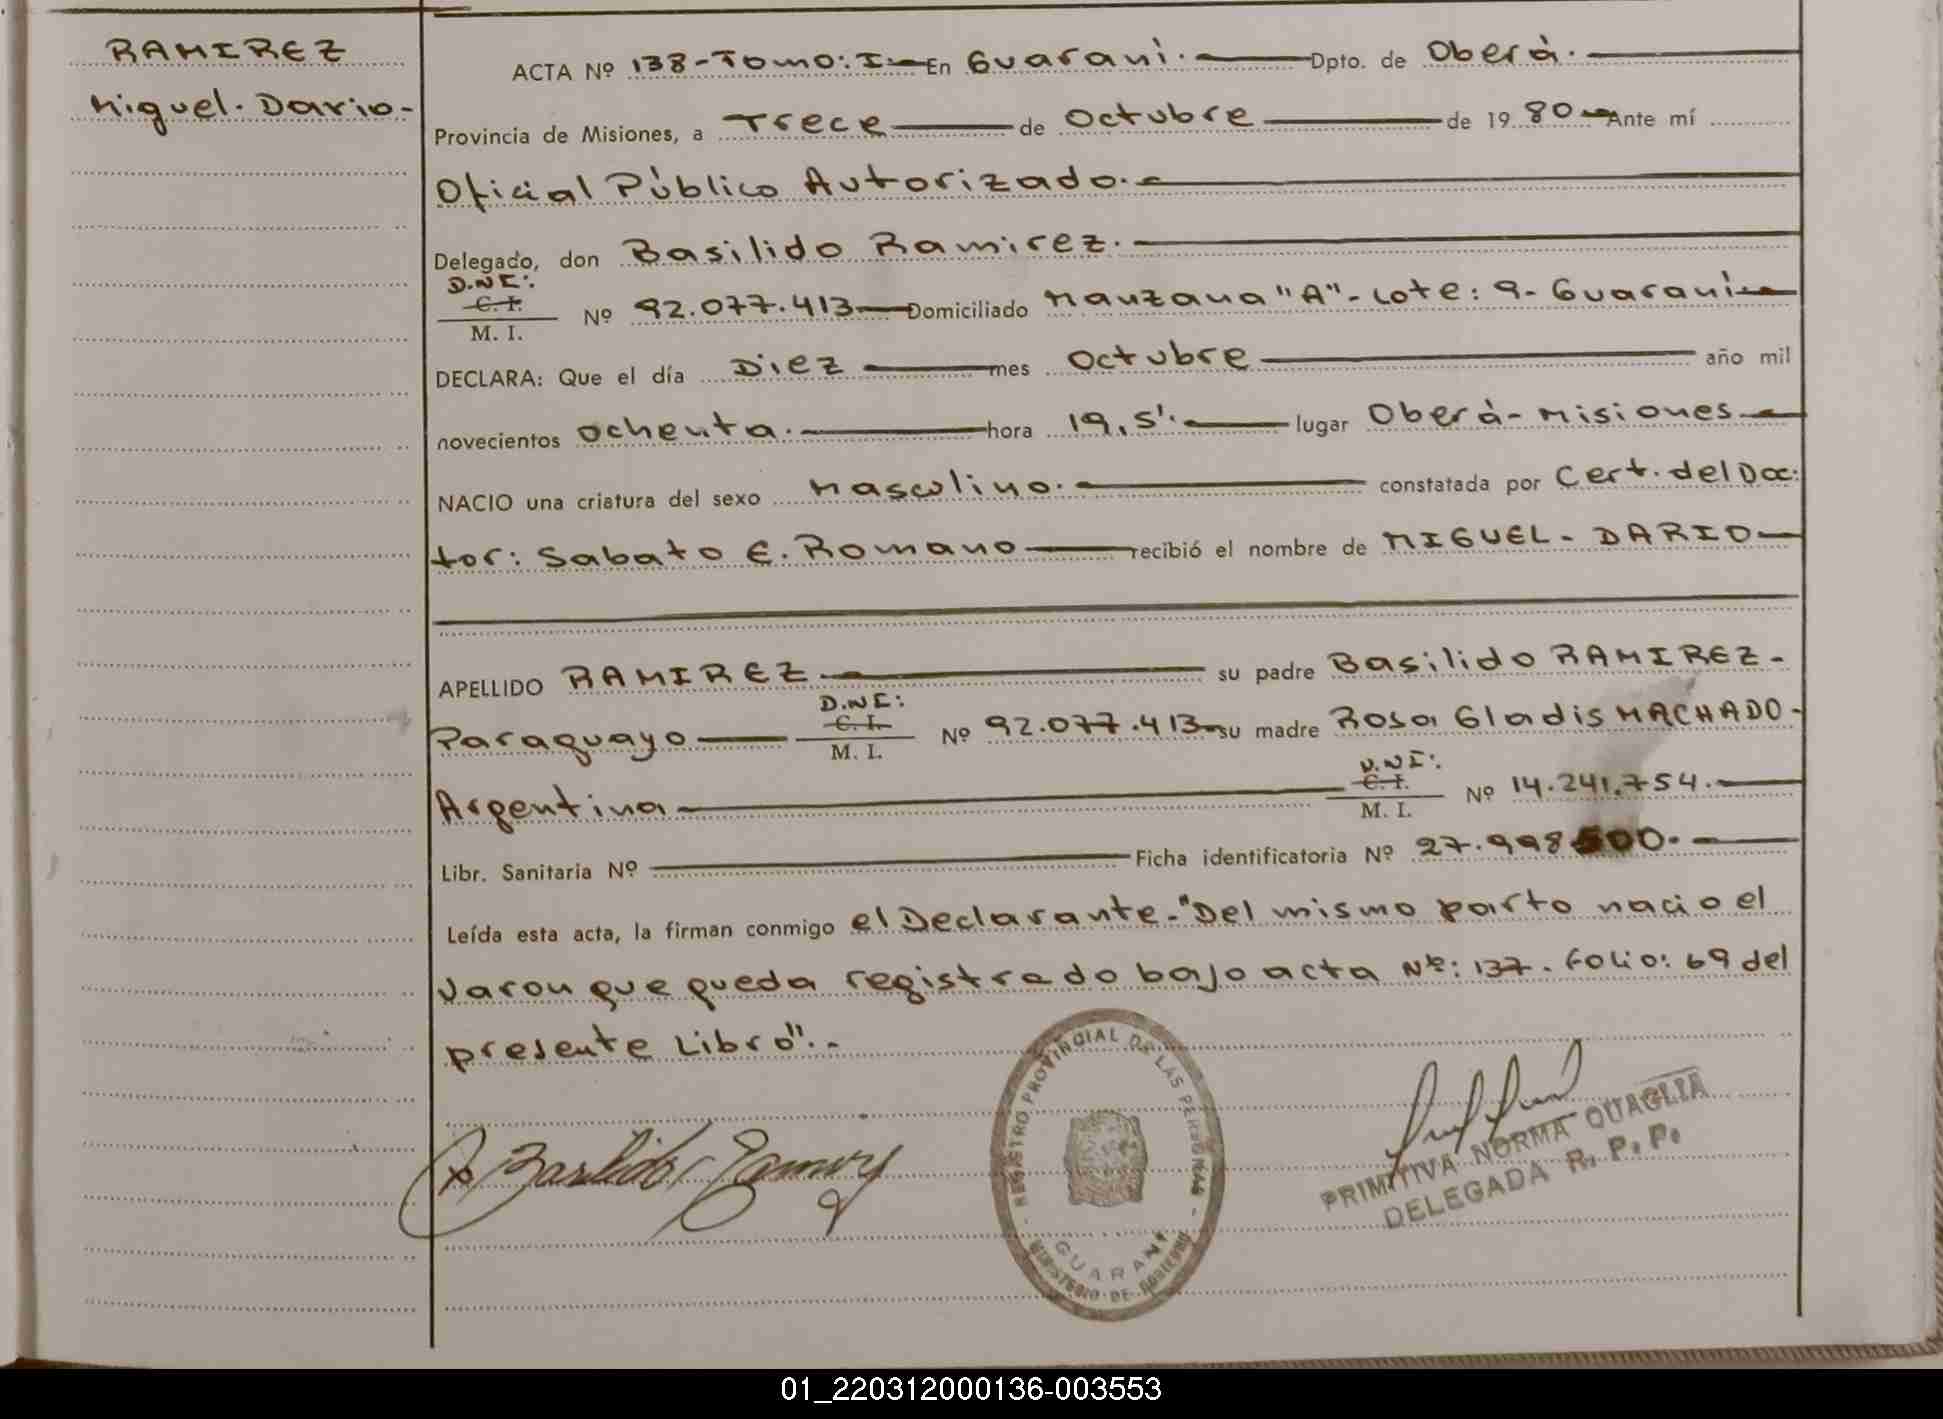 RAMIREZ
Miguel. Dario-
ACTA Nº 138-Tomo: I- En Guarani. Dpto. de Oberà.
Provincia de Misiones, a Trece de Octubre de 1980- Ante mí
Oficial Público Autorizado.-
Delegado, don Basilido Ramirez.
D.N.I:
C. I.
M. I. Nº 92.077.413 Domiciliado Manzana "A"- Lote: 9- Guarani-
DECLARA: Que el día Diez mes Octubre año mil
novecientos ochenta. hora 19,5'. lugar Oberà-Misiones-
NACIO una criatura del sexo Masculino. constatada por Cert. del Doc:
tor: Sabato E. Romano recibió el nombre de MIGUEL- DARIO-
APELLIDO RAMIREZ su padre Basilido RAMIREZ-
Paraguayo D.N.I: C. I. M. I. Nº 92.077.413 su madre Rosa Gladis MACHADO-
Argentina D.N.I: C. I. M. I. Nº 14.241.754.
Libr. Sanitaria Nº Ficha identificatoria Nº 27.998.500.
Leída esta acta, la firman conmigo el Declarante-"Del mismo parto nacio el
varon que queda registrado bajo acta Nº: 137. Folio: 69 del
presente Libro".-
Basilido Ramirez
REGISTRO PROVINCIAL DE LAS PERSONAS
GUARANI
MINISTERIO DE GOBIERNO
PRIMITIVA NORMA QUAGLIA
DELEGADA R. P. P.
01_220312000136-003553